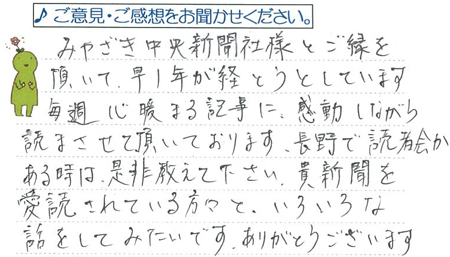 ♪ご意見・ご感想をお聞かせください。
みやざき中央新聞社様とご縁を
頂いて、早1年が経とうとしています
毎週 心暖まる記事に、感動しながら
読まさせて頂いております、長野で読者会が
ある時は、是非教えて下さい、貴新聞を
愛読されている方々と、いろいろな
話をしてみたいです、ありがとうございます